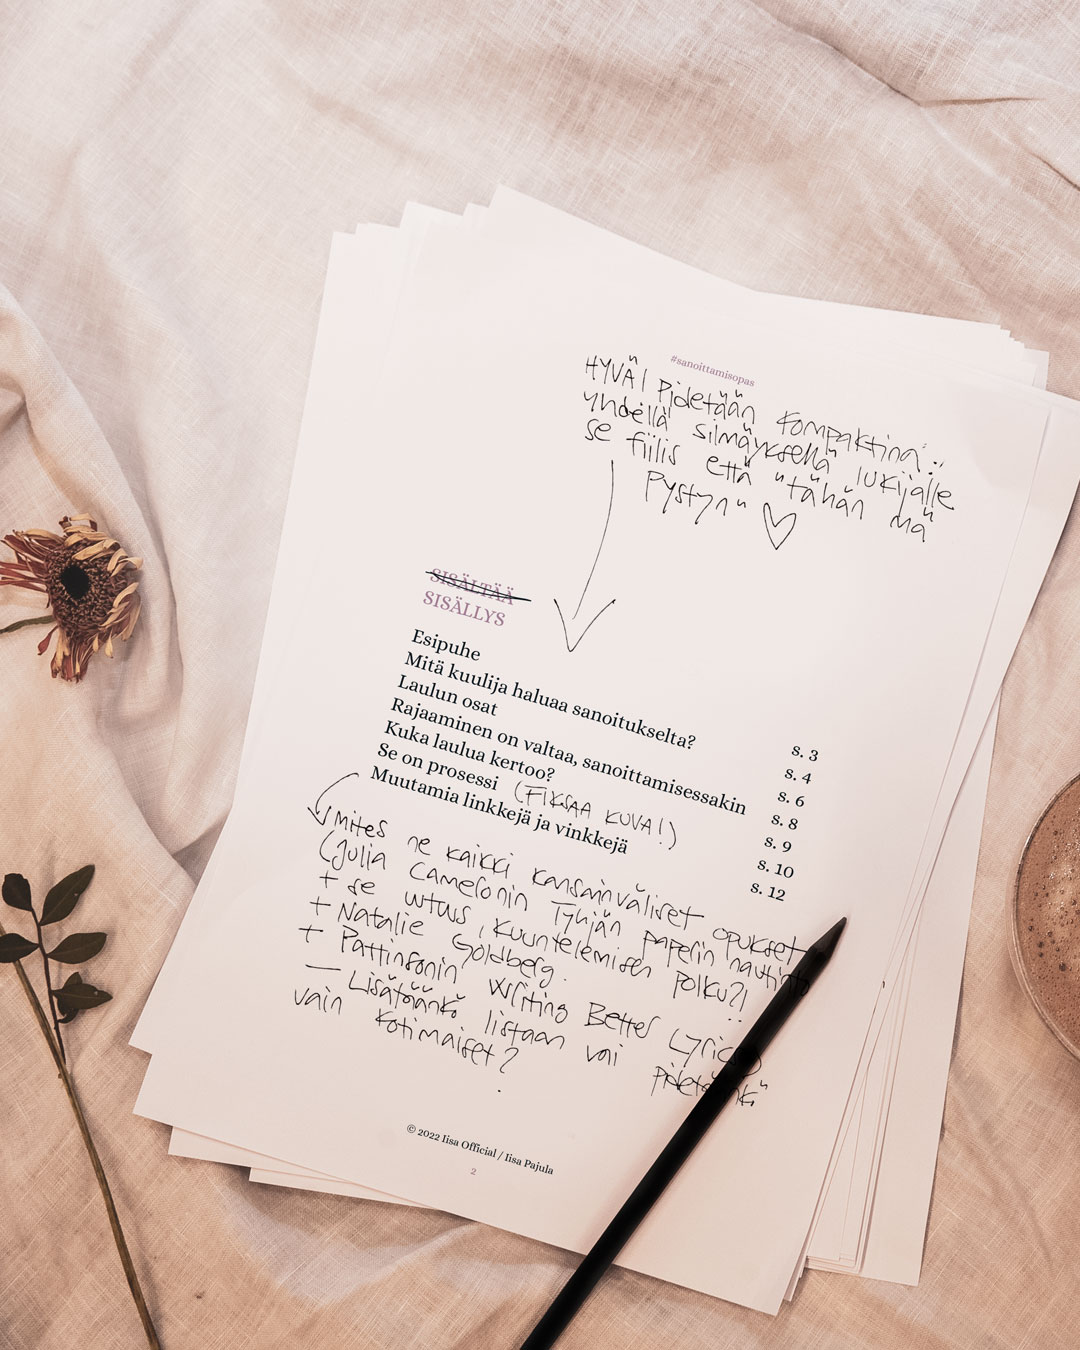 #sanoittamisopas
HYVÄ! Pidetään kompaktina:
yhdellä silmäyksellä lukijalle
se fiilis että "tähän mä
pystyn" ♡
SISÄLTÄÄ
SISÄLLYS
Esipuhe s. 3
Mitä kuulija haluaa sanoitukselta? s. 4
Laulun osat s. 6
Rajaaminen on valtaa, sanoittamisessakin s. 8
Kuka laulua kertoo? s. 9
Se on prosessi (FIKSAA KUVA!) s. 10
Muutamia linkkejä ja vinkkejä s. 12
Mites ne kaikki kansainväliset opukset
(Julia Cameronin Tyhjän paperin nautinto
+ se uutuus, Kuuntelemisen polku?!
+ Natalie Goldberg.
+ Pattinsonin Writing Better Lyrics)
– Lisätäänkö listaan vai pidetäänkö
vain kotimaiset?
© 2022 Iisa Official / Iisa Pajula
2